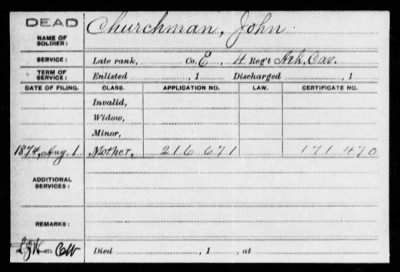 DEAD
NAME OF SOLDIER: Churchman, John
SERVICE: Late rank, Co. E, 4 Reg't Ark. Cav.
TERM OF SERVICE: Enlisted , 1 Discharged , 1
DATE OF FILING. CLASS. APPLICATION NO. CERTIFICATE NO.
Invalid,
Widow,
Minor,
1874, Aug. 1 Mother, 216 671 171 470
ADDITIONAL SERVICES:
REMARKS:
Died , 1 , at